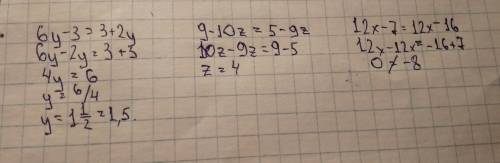 6y-3=3+2y
6y-2y=3+3
4y=6
y=6/4
y=1 1/2=1,5.
9-10z=5-9z
10z-9z=9-5
z=4
12x-7=12x-16
12x-12x=-16+7
0≠-8